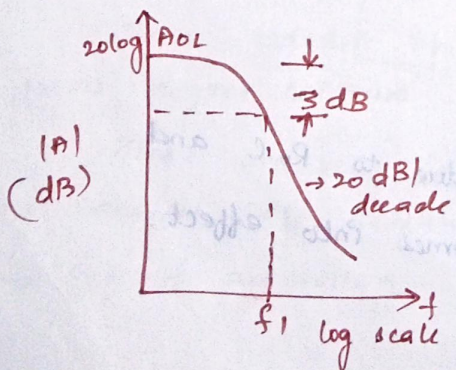 20log AOL
3 dB
|A|
(dB)
→ 20 dB/
decade
f1
f
log scale